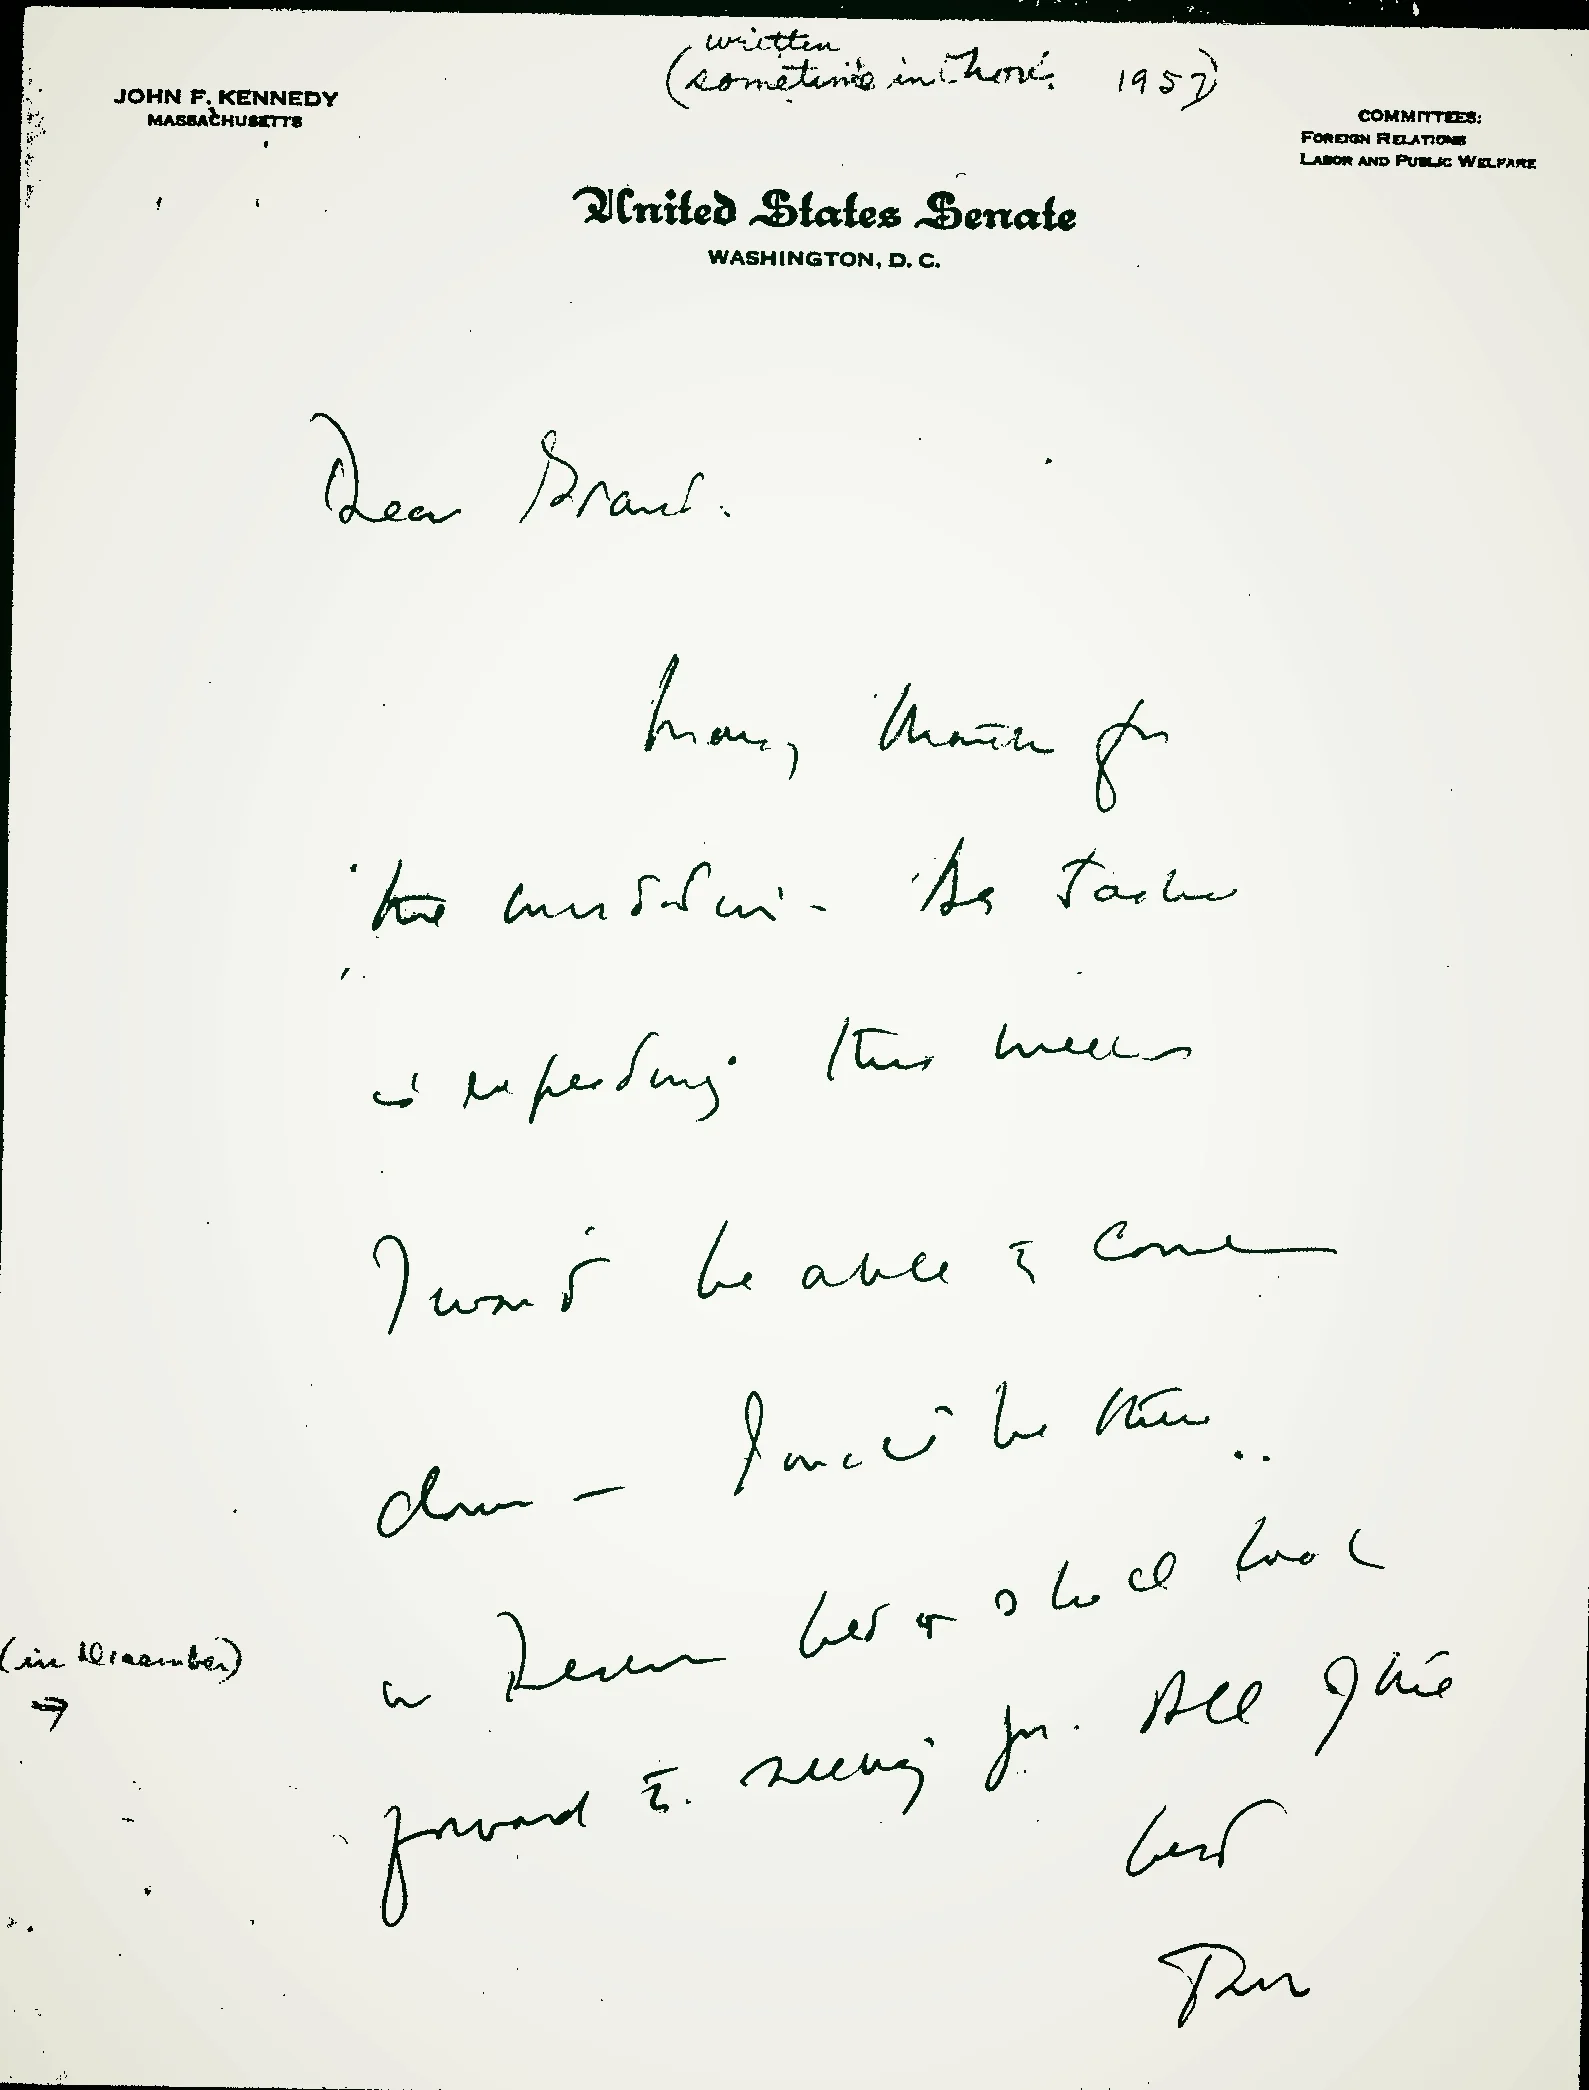 written
(sometime in Nov. 1957)
JOHN F. KENNEDY
MASSACHUSETTS
COMMITTEES:
FOREIGN RELATIONS
LABOR AND PUBLIC WELFARE
United States Senate
WASHINGTON, D. C.
Dear Grant.
Many thanks for
the invitation - As Jackie
is expecting this week
I won't be able to come
down - I will be there
(in December)
in December but shall look
forward to seeing you. All the
best